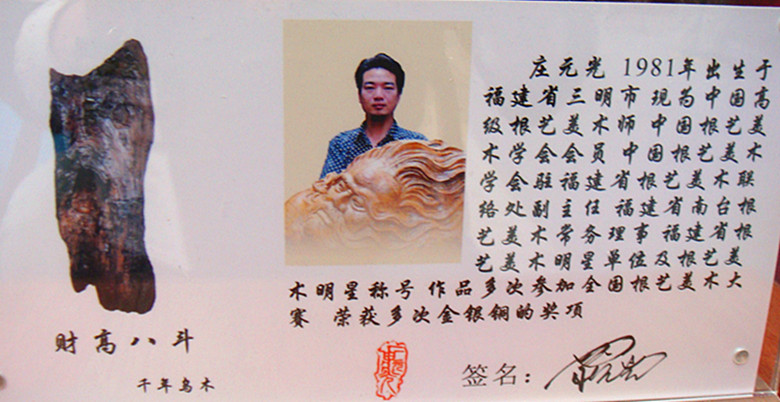 庄元光 1981年出生于
福建省三明市 现为中国高
级根艺美术师 中国根艺美
术学会会员 中国根艺美术
学会驻福建省根艺美术联
络处副主任 福建省南台根
艺美术常务理事 福建省根
艺美术明星单位及根艺美
术明星称号 作品多次参加全国根艺美术大
赛 荣获多次金银铜的奖项
财高八斗
千年乌木
签名: